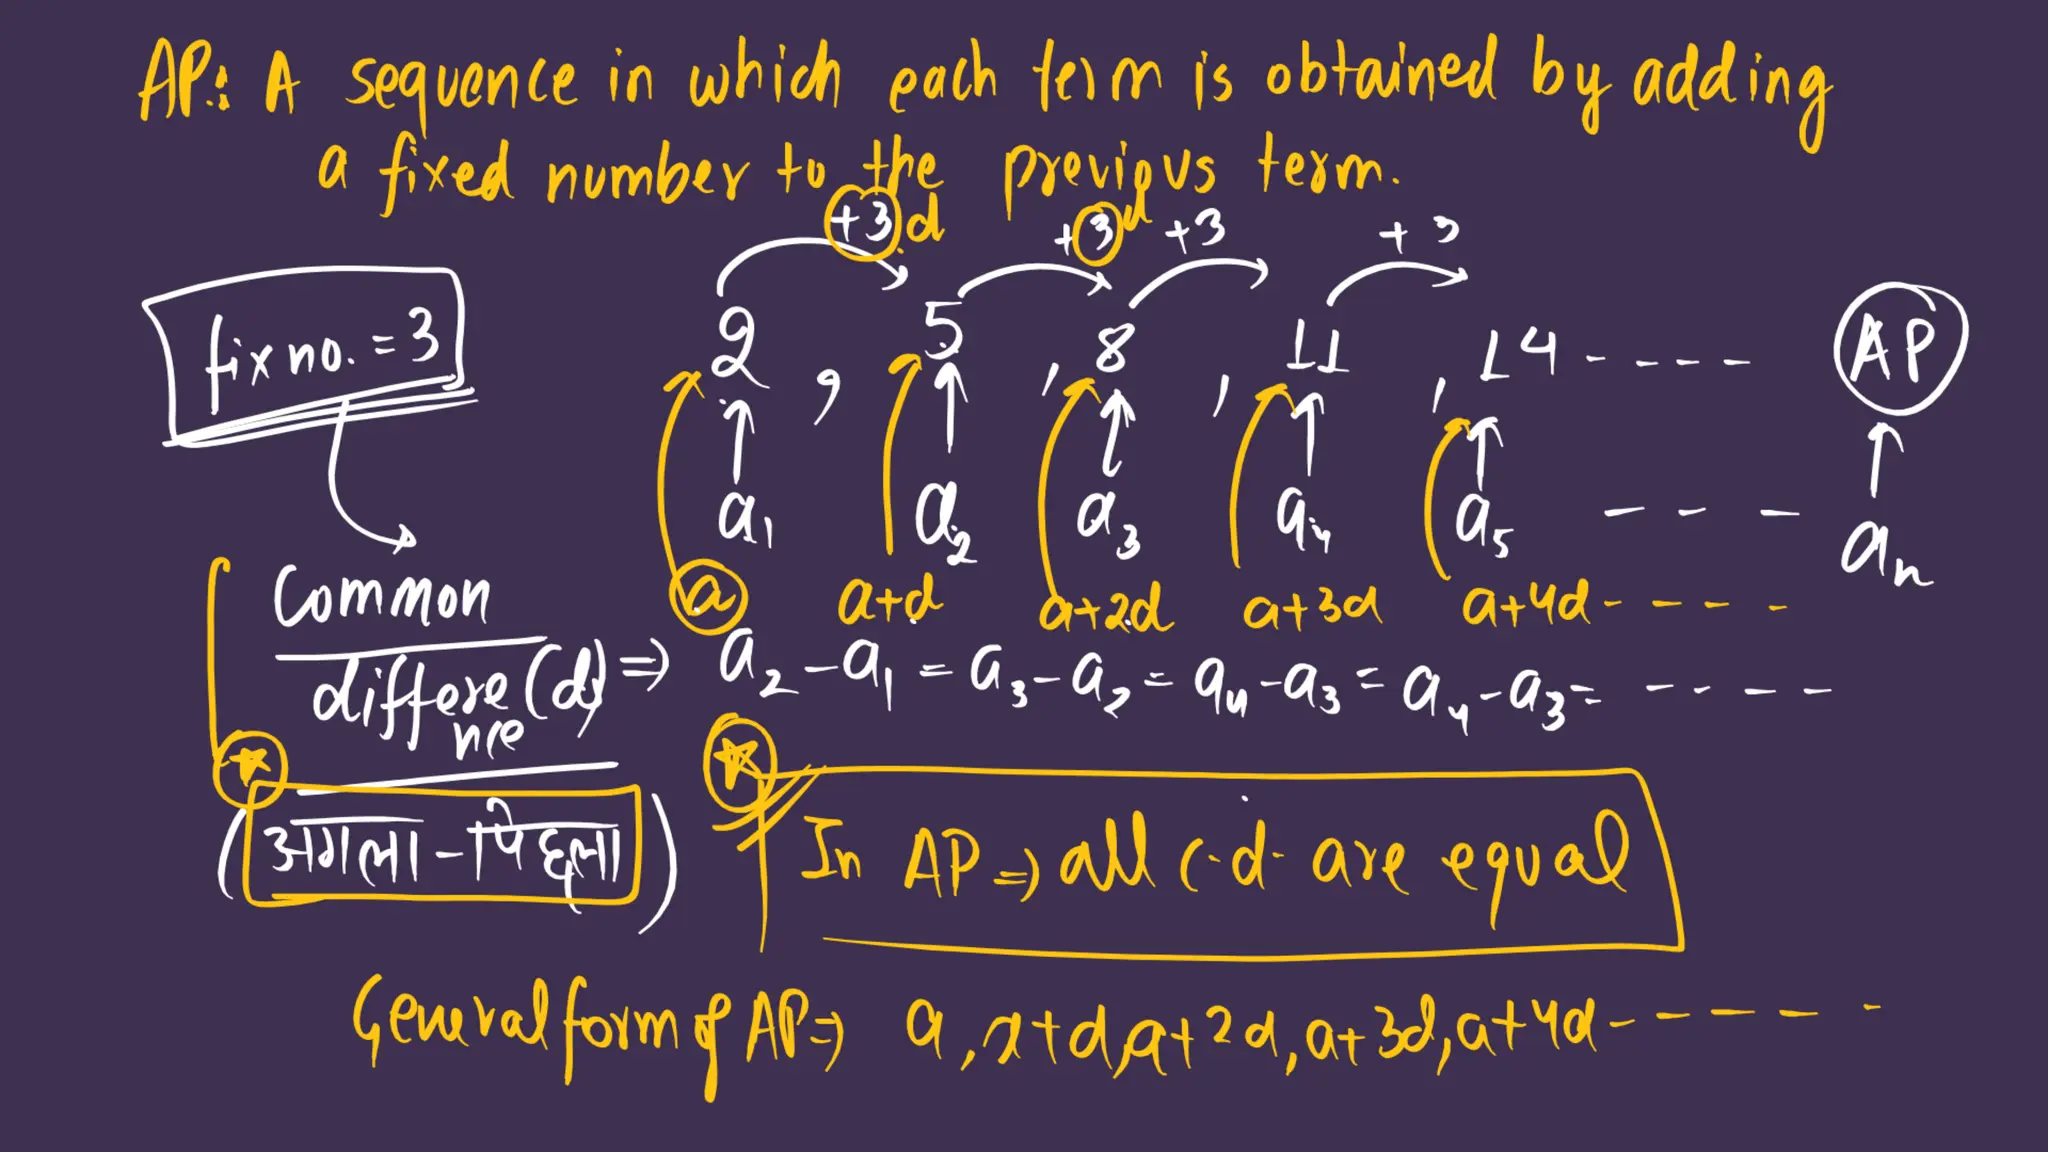 AP: A sequence in which each term is obtained by adding
a fixed number to the previous term.
+3 d +3 d +3 +3
fix no. = 3
2, 5, 8, 11, 14 - - - - AP
a₁ a₂ a₃ a₄ a₅ - - - aₙ
a a+d a+2d a+3d a+4d - - - -
Common
difference (d) ⇒ a₂ - a₁ = a₃ - a₂ = a₄ - a₃ = a₄ - a₃ = - - - -
(अगला - पिछला)
In AP ⇒ all c.d. are equal
General form of AP ⇒ a, x+d, a+2d, a+3d, a+4d - - - - -